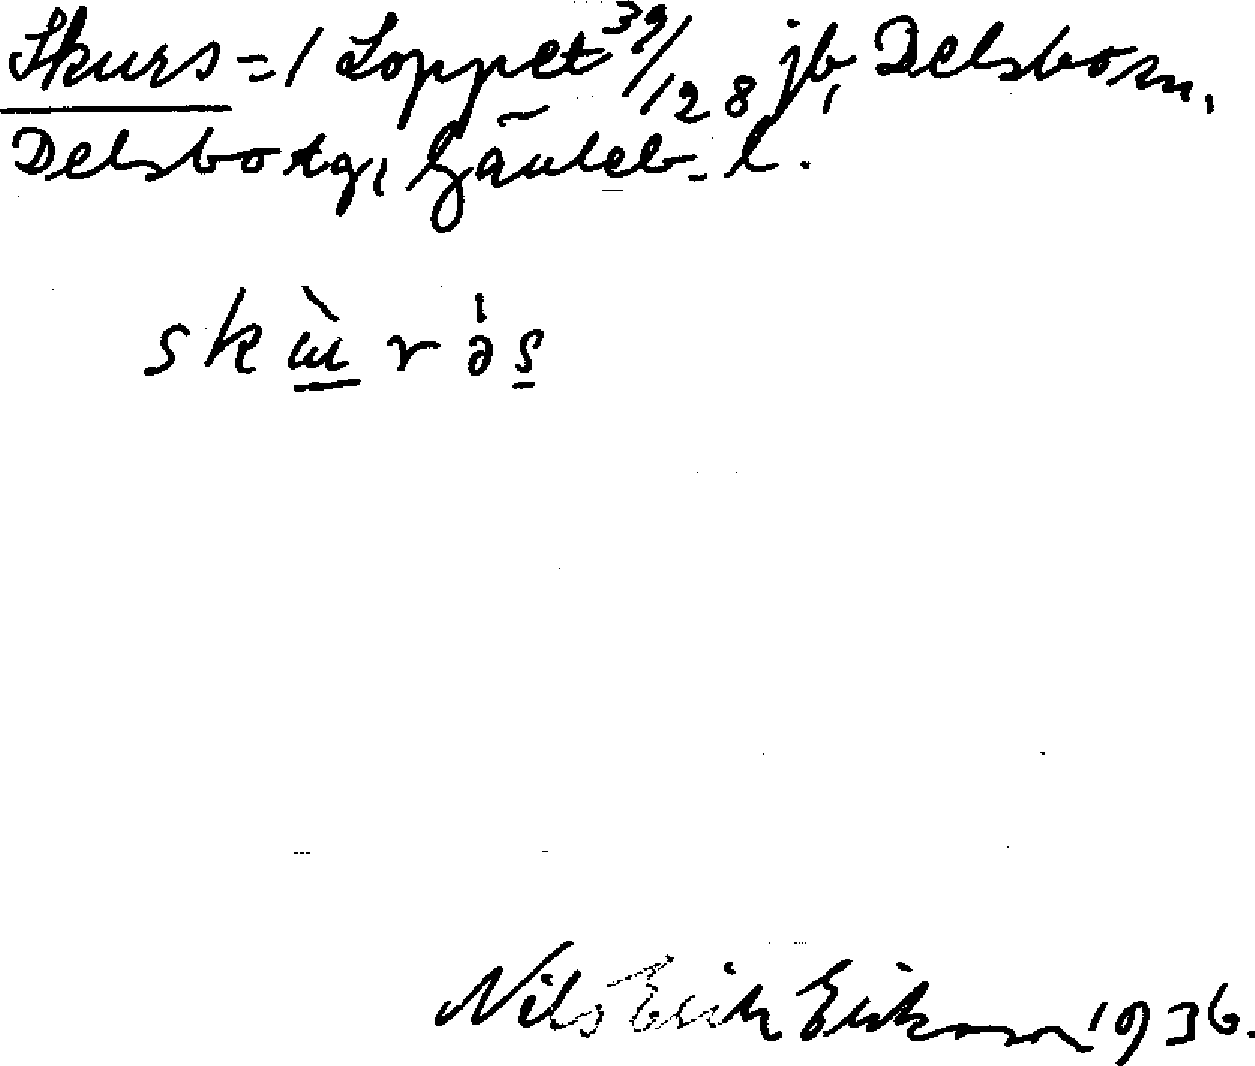 Skurs = 1 Loppet 39/128 jb, Delsbo sn,
Delsbo tg, Gävleb. l.
skɯ̀rə̍s
Nils Erik Erikson 1936.